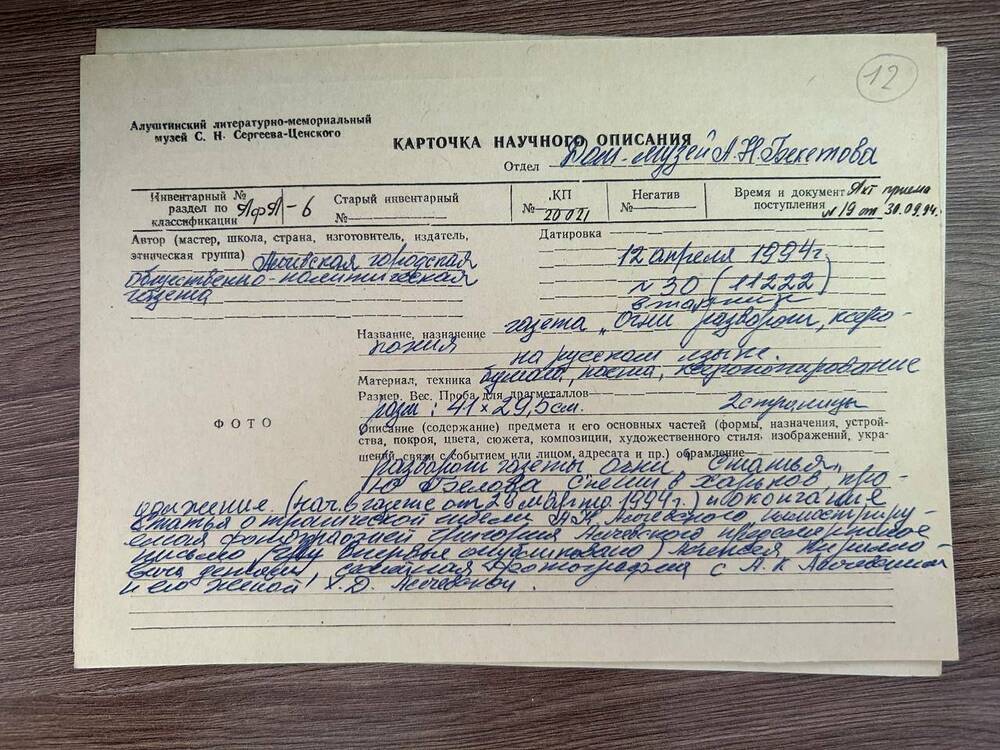 12
Алуштинский литературно-мемориальный
музей С. Н. Сергеева-Ценского
КАРТОЧКА НАУЧНОГО ОПИСАНИЯ
Отдел Дом-музей А.Н.Бекетова
Инвентарный № раздел по классификации АфА-6
Старый инвентарный №
КП № 20021
Негатив №
Время и документ поступления Акт приема №19 от 30.09.94.
Автор (мастер, школа, страна, изготовитель, издатель,
этническая группа) городская
общественно-политическая
газета
Датировка
12 апреля 1994г.
№ 30 (11222)
вторник
Название, назначение газета "Огни" разворот, ксеро-
копия на русском языке.
Материал, техника бумага, краска, ксерокопирование
Размер. Вес. Проба для драгметаллов
разм: 41×29,5см. 2 страницы
ФОТО
Описание (содержание) предмета и его основных частей (формы, назначения, устрой-
ства, покроя, цвета, сюжета, композиции, художественного стиля изображений, укра-
шений, связи с событием или лицом, адресата и пр.) обрамление
разворот газеты Огни статья
Ю Белова Спеши в Харьков, про-
должение. (нач. в газете от 29 марта 1994г.) и окончание
статья о трагической гибели А.К. Алчевского иллюстрируе-
мая фотографией Григория Алчевского предсмертное
письмо впервые опубликовано) Алексея Кирилло-
вича семейная фотография с А.К Алчевским
и его женой Х.Д. Алчевской.